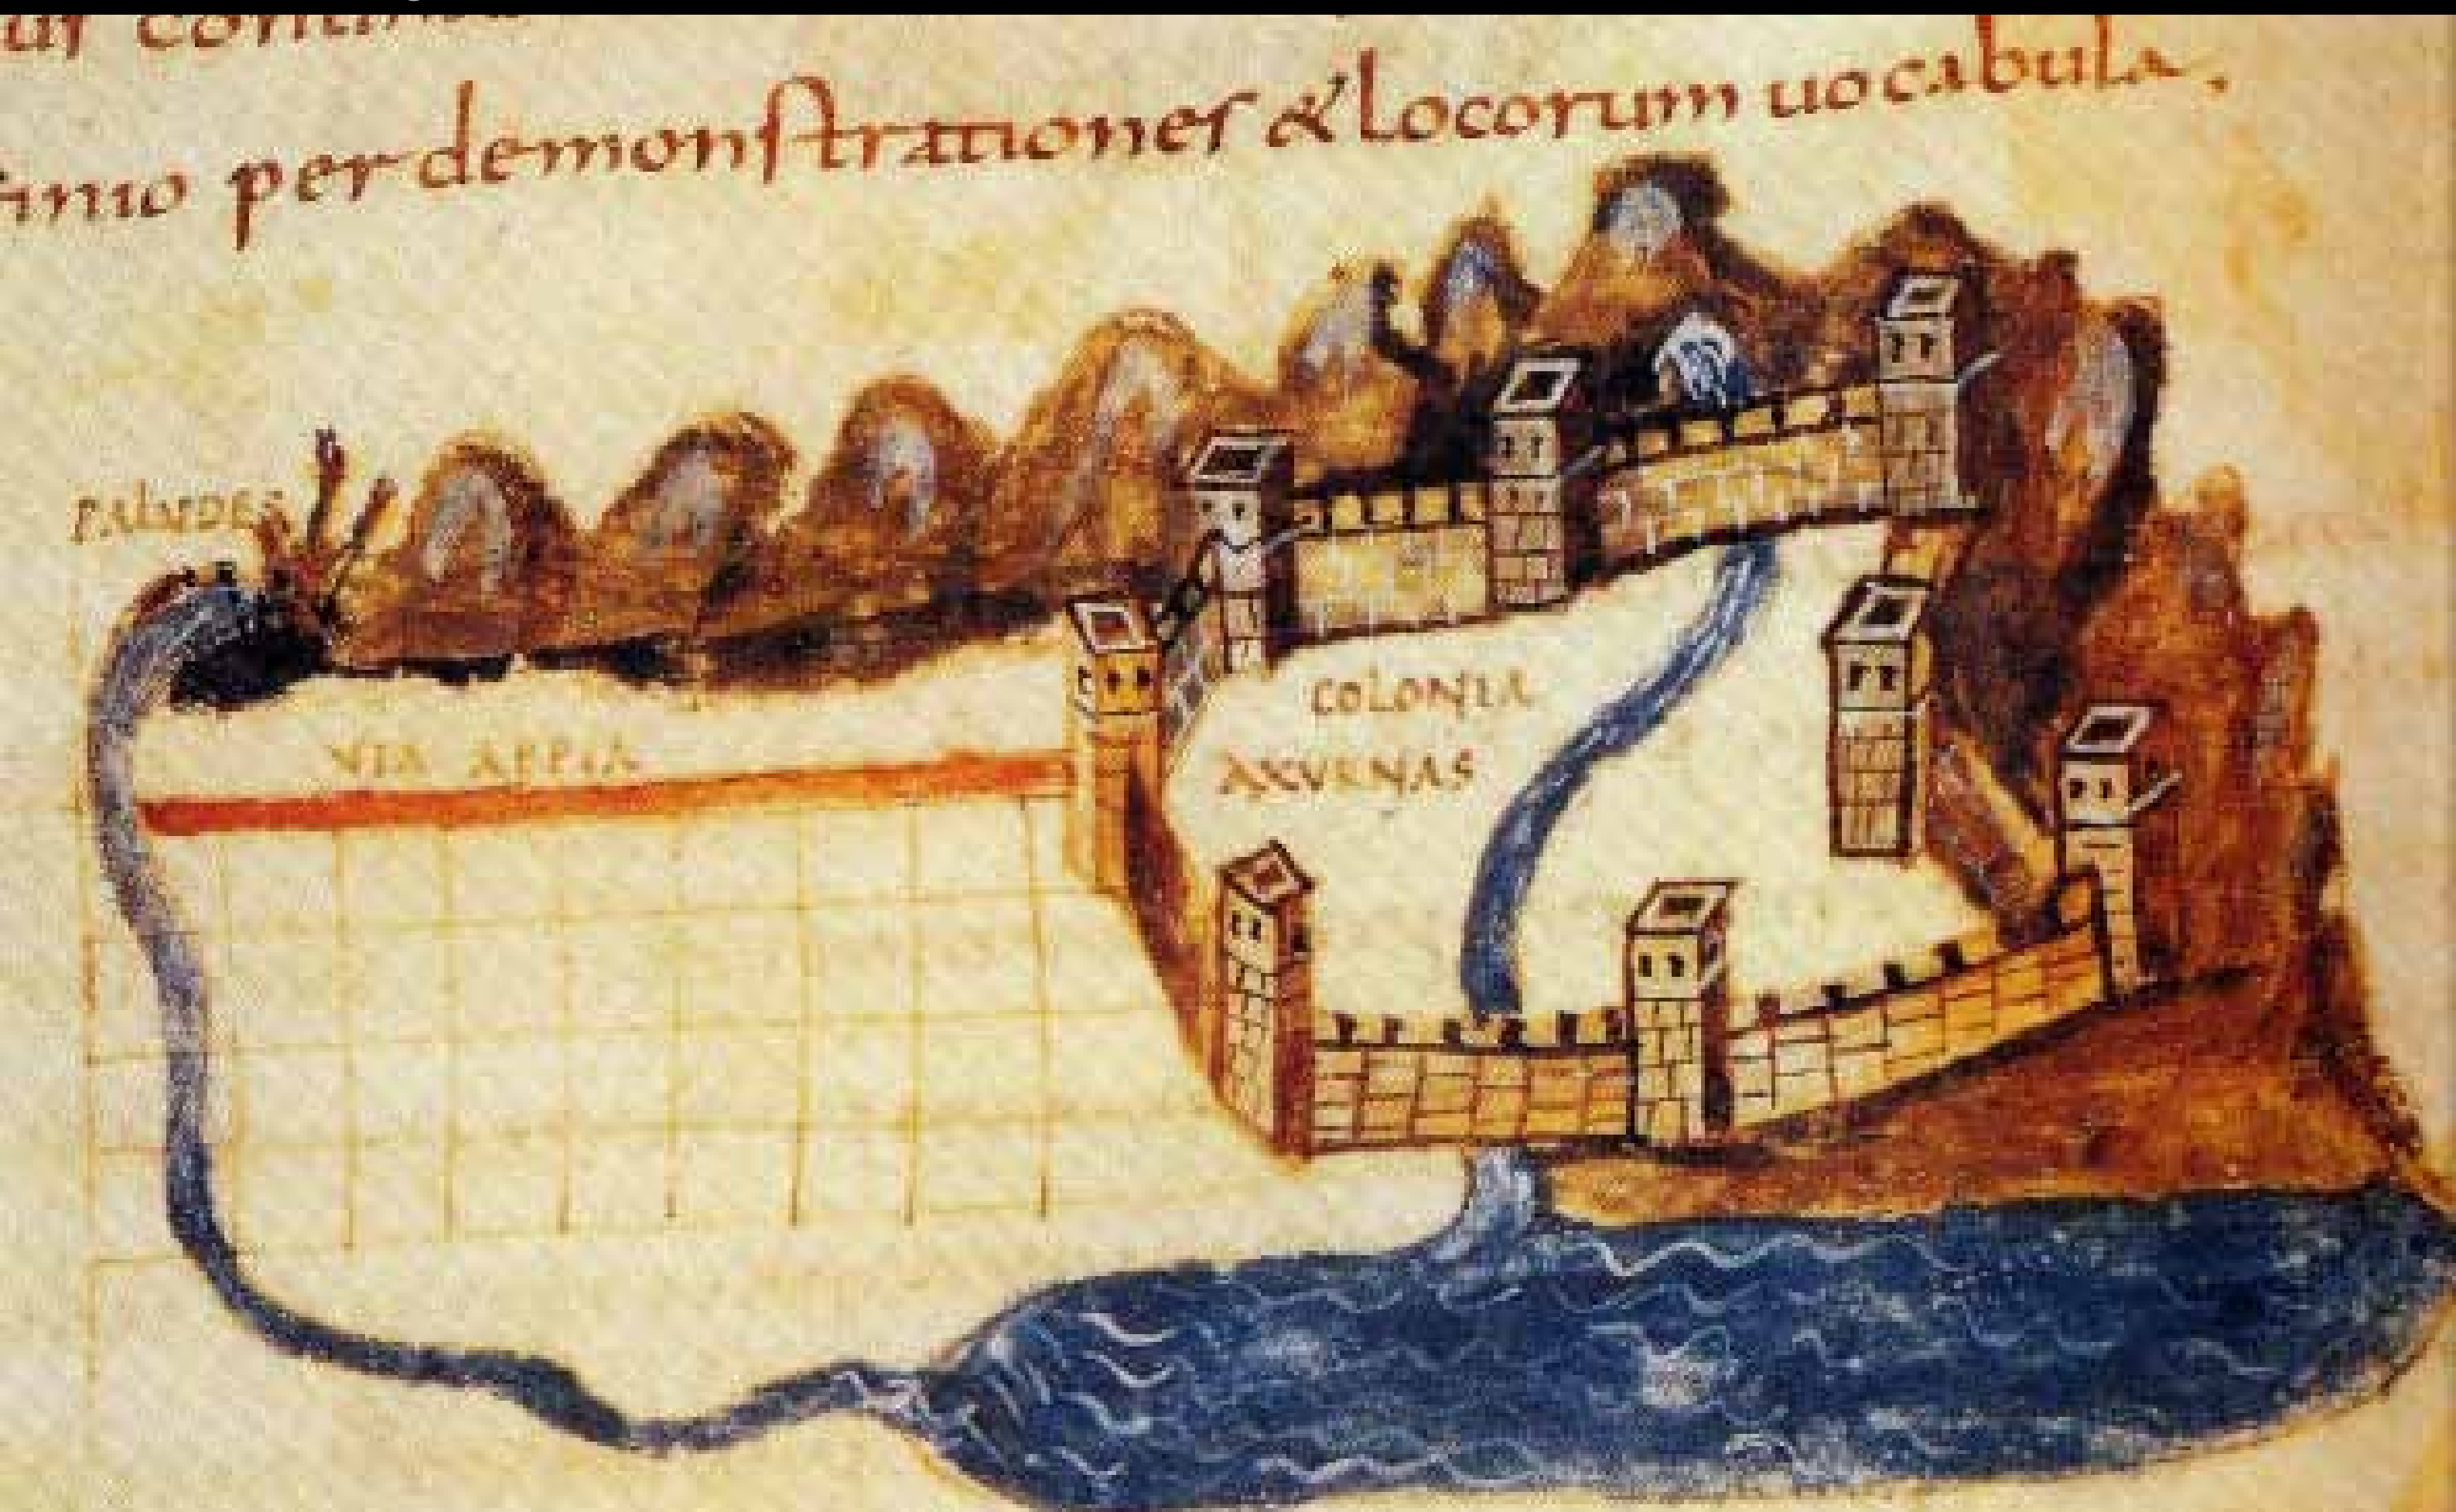 per demonstrationes & locorum uocabula.
PALVDES
COLONIA
VIA APPIA
AXVRNAS